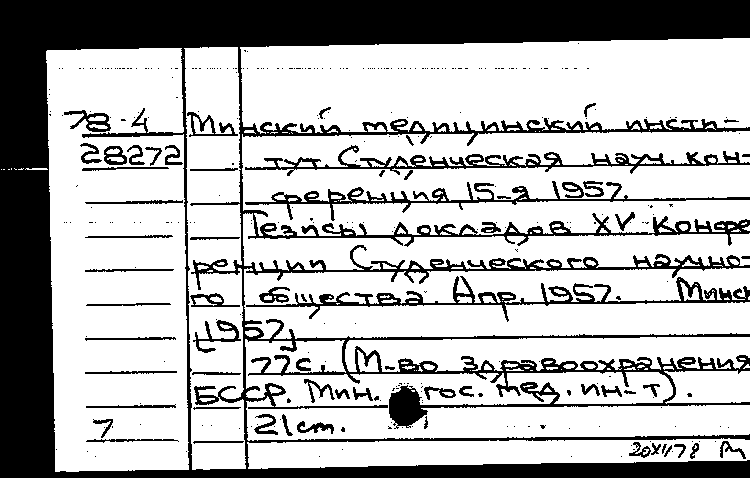 78-4 Минский медицинский инсти-
28272 тут. Студенческая науч. кон-
ференция, 15-я 1957.
Тезисы докладов XV Конфе
ренции Студенческого научно-
го общества. Апр. 1957. Минск
[1957]
77с. (М-во здравоохранения
БССР. Мин. гос. мед. ин-т).
7 21cm.